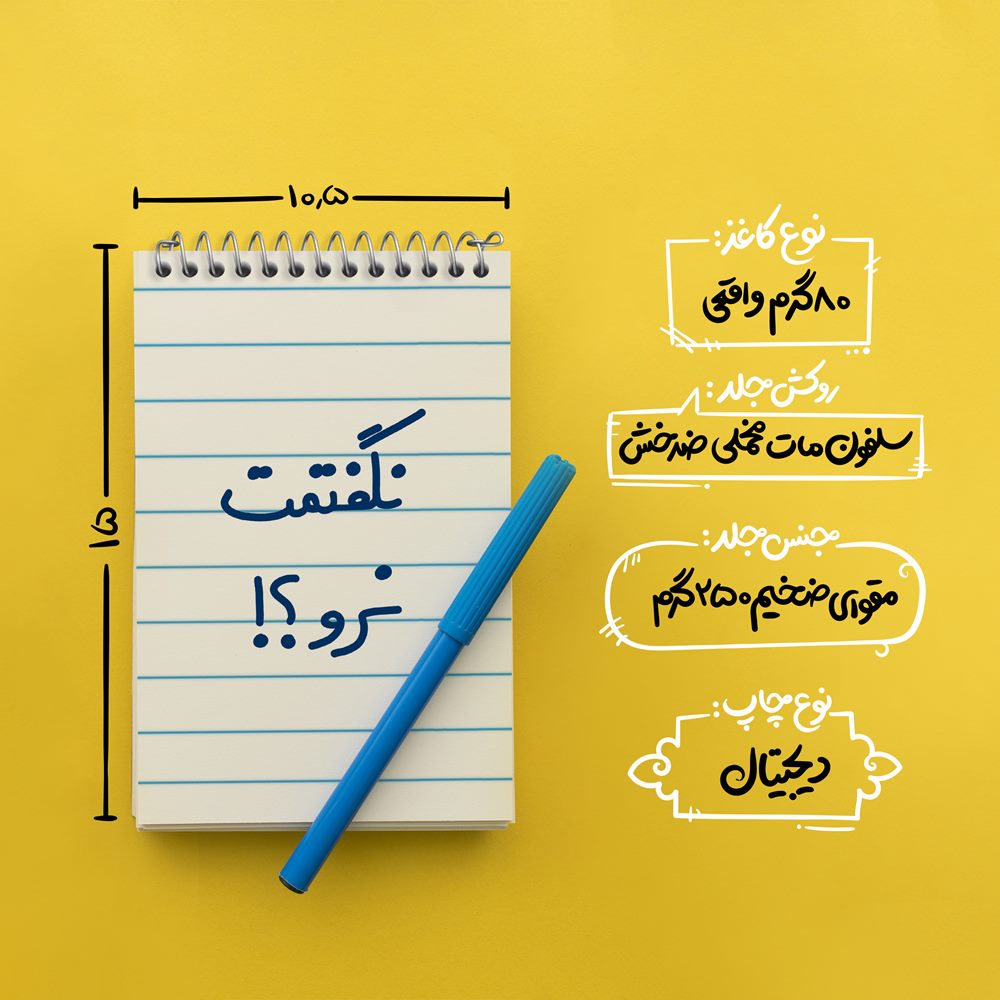 ۱۰٫۵
۱۵
نگفتمت
نرو؟!
نوع کاغذ:
۸۰گرم واقعی
روکش جلد:
سلفون مات مخملی ضدخش
جنس جلد:
مقوای ضخیم ۲۵۰گرم
نوع چاپ:
دیجیتال